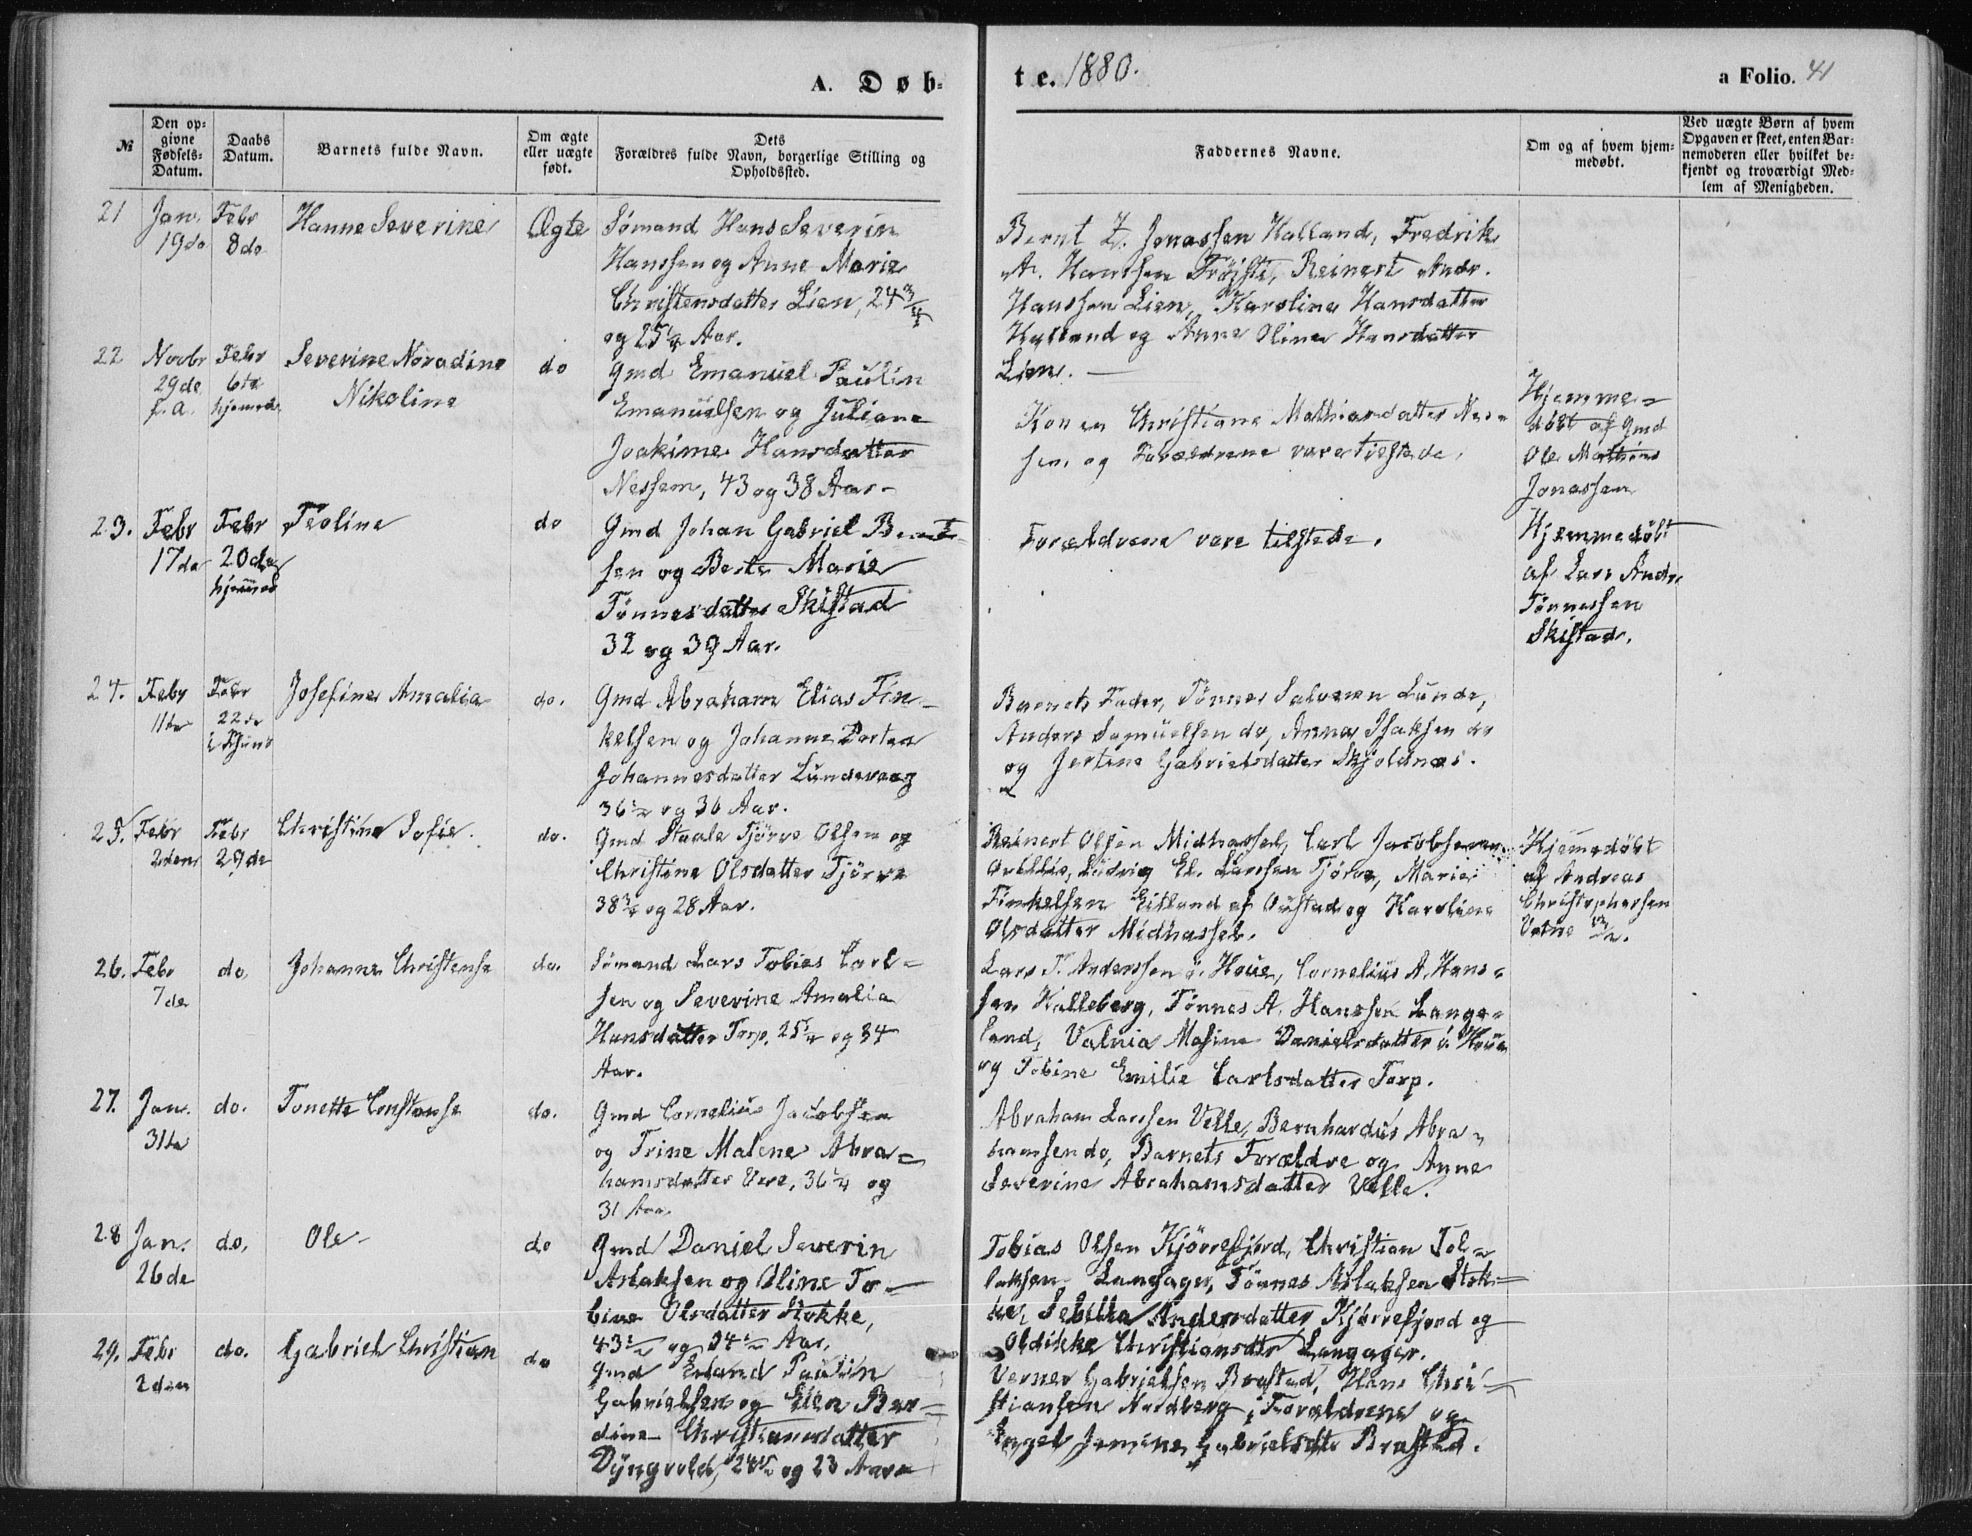 A. Døb=
te. 1880.
a Folio. 41
№
Den op=
givne
Fødsels=
Datum.
Daabs
Datum.
Barnets fulde Navn.
Om ægte
eller uægte
født.
Dets
Forældres fulde Navn, borgerlige Stilling og
Opholdssted.
Faddernes Navne.
Om og af hvem hjem=
medøbt.
Ved uægte Børn af hvem
Opgaven er skeet, enten Bar=
nemoderen eller hvilket be=
kjendt og troværdigt Med=
lem af Menigheden.
21
Jan.
19de
Febr
8de
Hanne Severine
Ægte
Sømand Hans Severin
Hanssen og Anne Marie
Christensdatter Lien, 24 3/4
og 25 1/4 Aar.
Bernt Z. Jonassen Halland, Fredrik
A. Hanssen Frøiste, Reinert Andr.
Hanssen Lien, Karoline Hansdatter
Halland og Anne Oline Hansdatter
Lien.
22
Novbr
29de
f. a.
Febr
6te
hjemmed.
Severine Noradine
Nikoline
do
Gmd Emanuel Paulin
Emanuelsen og Juliane
Joakime Hansdatter
Nessem, 43 og 38 Aar
Konen Christiane Mathiasdatter Nes=
sem og Forældrene vare tilstede.
Hjemme=
døbt af Gmd
Ole Mathias
Jonassen
23.
Febr
17de
Febr
20de
hjemmed
Teoline
do
Gmd Johan Gabriel Bernt
sen og Berte Marie
Tønnesdatter Skistad
32 og 39 Aar.
Forældrene vare tilstede.
Hjemmedøbt
af Lars Andr.
Tønnessen
Skistad.
24.
Febr
11te
Febr
22de
Josefine Amalia
do.
Gmd Abraham Elias Fin=
kelsen og Johanne Dortea
Johannesdatter Lundevaag
36 1/2 og 36 Aar.
Barnets Fader, Tønnes Salvesen Lunde,
Anders Samuelsen do, Annas Isaksen do
og Jertine Gabrielsdatter Skjoldnæs.
25.
Febr
2den
Febr
29de
Christine Sofie.
do.
Gmd Staale Tjørve Olsen og
Christine Olsdatter Tjørve
38 3/4 og 28 Aar.
Reinert Olsen Midhassel, Carl Jacobsen
Ludvig El. Larssen Tjørve, Marie
Finkelsen Eitland af Oustad og Karoline
Olsdatter Midhassel.
Hjemmedøbt
af Andreas
Christophersen
Vatne
26.
Febr
7de
do.
Johanne Christense
do.
Sømand Lars Tobias Carl=
sen og Severine Amalia
Hansdatter Torp, 25 1/4 og 34
Aar.
Lars T. Anderssen ø. Houe, Cornelius A. Hans=
sen Kalleberg, Tønnes A. Hanssen Lange=
land, Valnia Mosine Danielsdatter ø. Houe
og Tobine Emilie Carlsdatter Torp.
27.
Jan.
31te
do.
Tonette Constanse
do.
Gmd Cornelius Jacobsen
og Trine Malene Abra=
hamsdatter Vere, 36 1/4 og
31 Aar.
Abraham Larssen Velle, Bernhardus Abra=
hamsen do, Barnets Forældre og Anne
Severine Abrahamsdatter Velle.
28
Jan.
26de
do.
Ole
do
Gmd Daniel Severin
Aslaksen og Oline To=
bine Olsdatter Stokke,
43 1/2 og 34 1/2 Aar.
Tobias Olsen Kjørrefjord, Christian Tol=
laksen Langager, Tønnes Aslaksen Stok=
ke, Sebilla Andersdatter Kjørrefjord og
Oldikke Christiansdtr Langager.
29.
Febr
2den
do.
Gabriel Christian
do
Gmd Erland Paulin
Gabrielsen og Elen Ber=
dine Christiansdatter
Dyngvold, 24 1/2 og 23 Aar
Verner Gabrielsen Brastad, Hans Chri=
stiansen Nordberg, Forældrene og
Engel Jemine Gabrielsdtr Brastad.